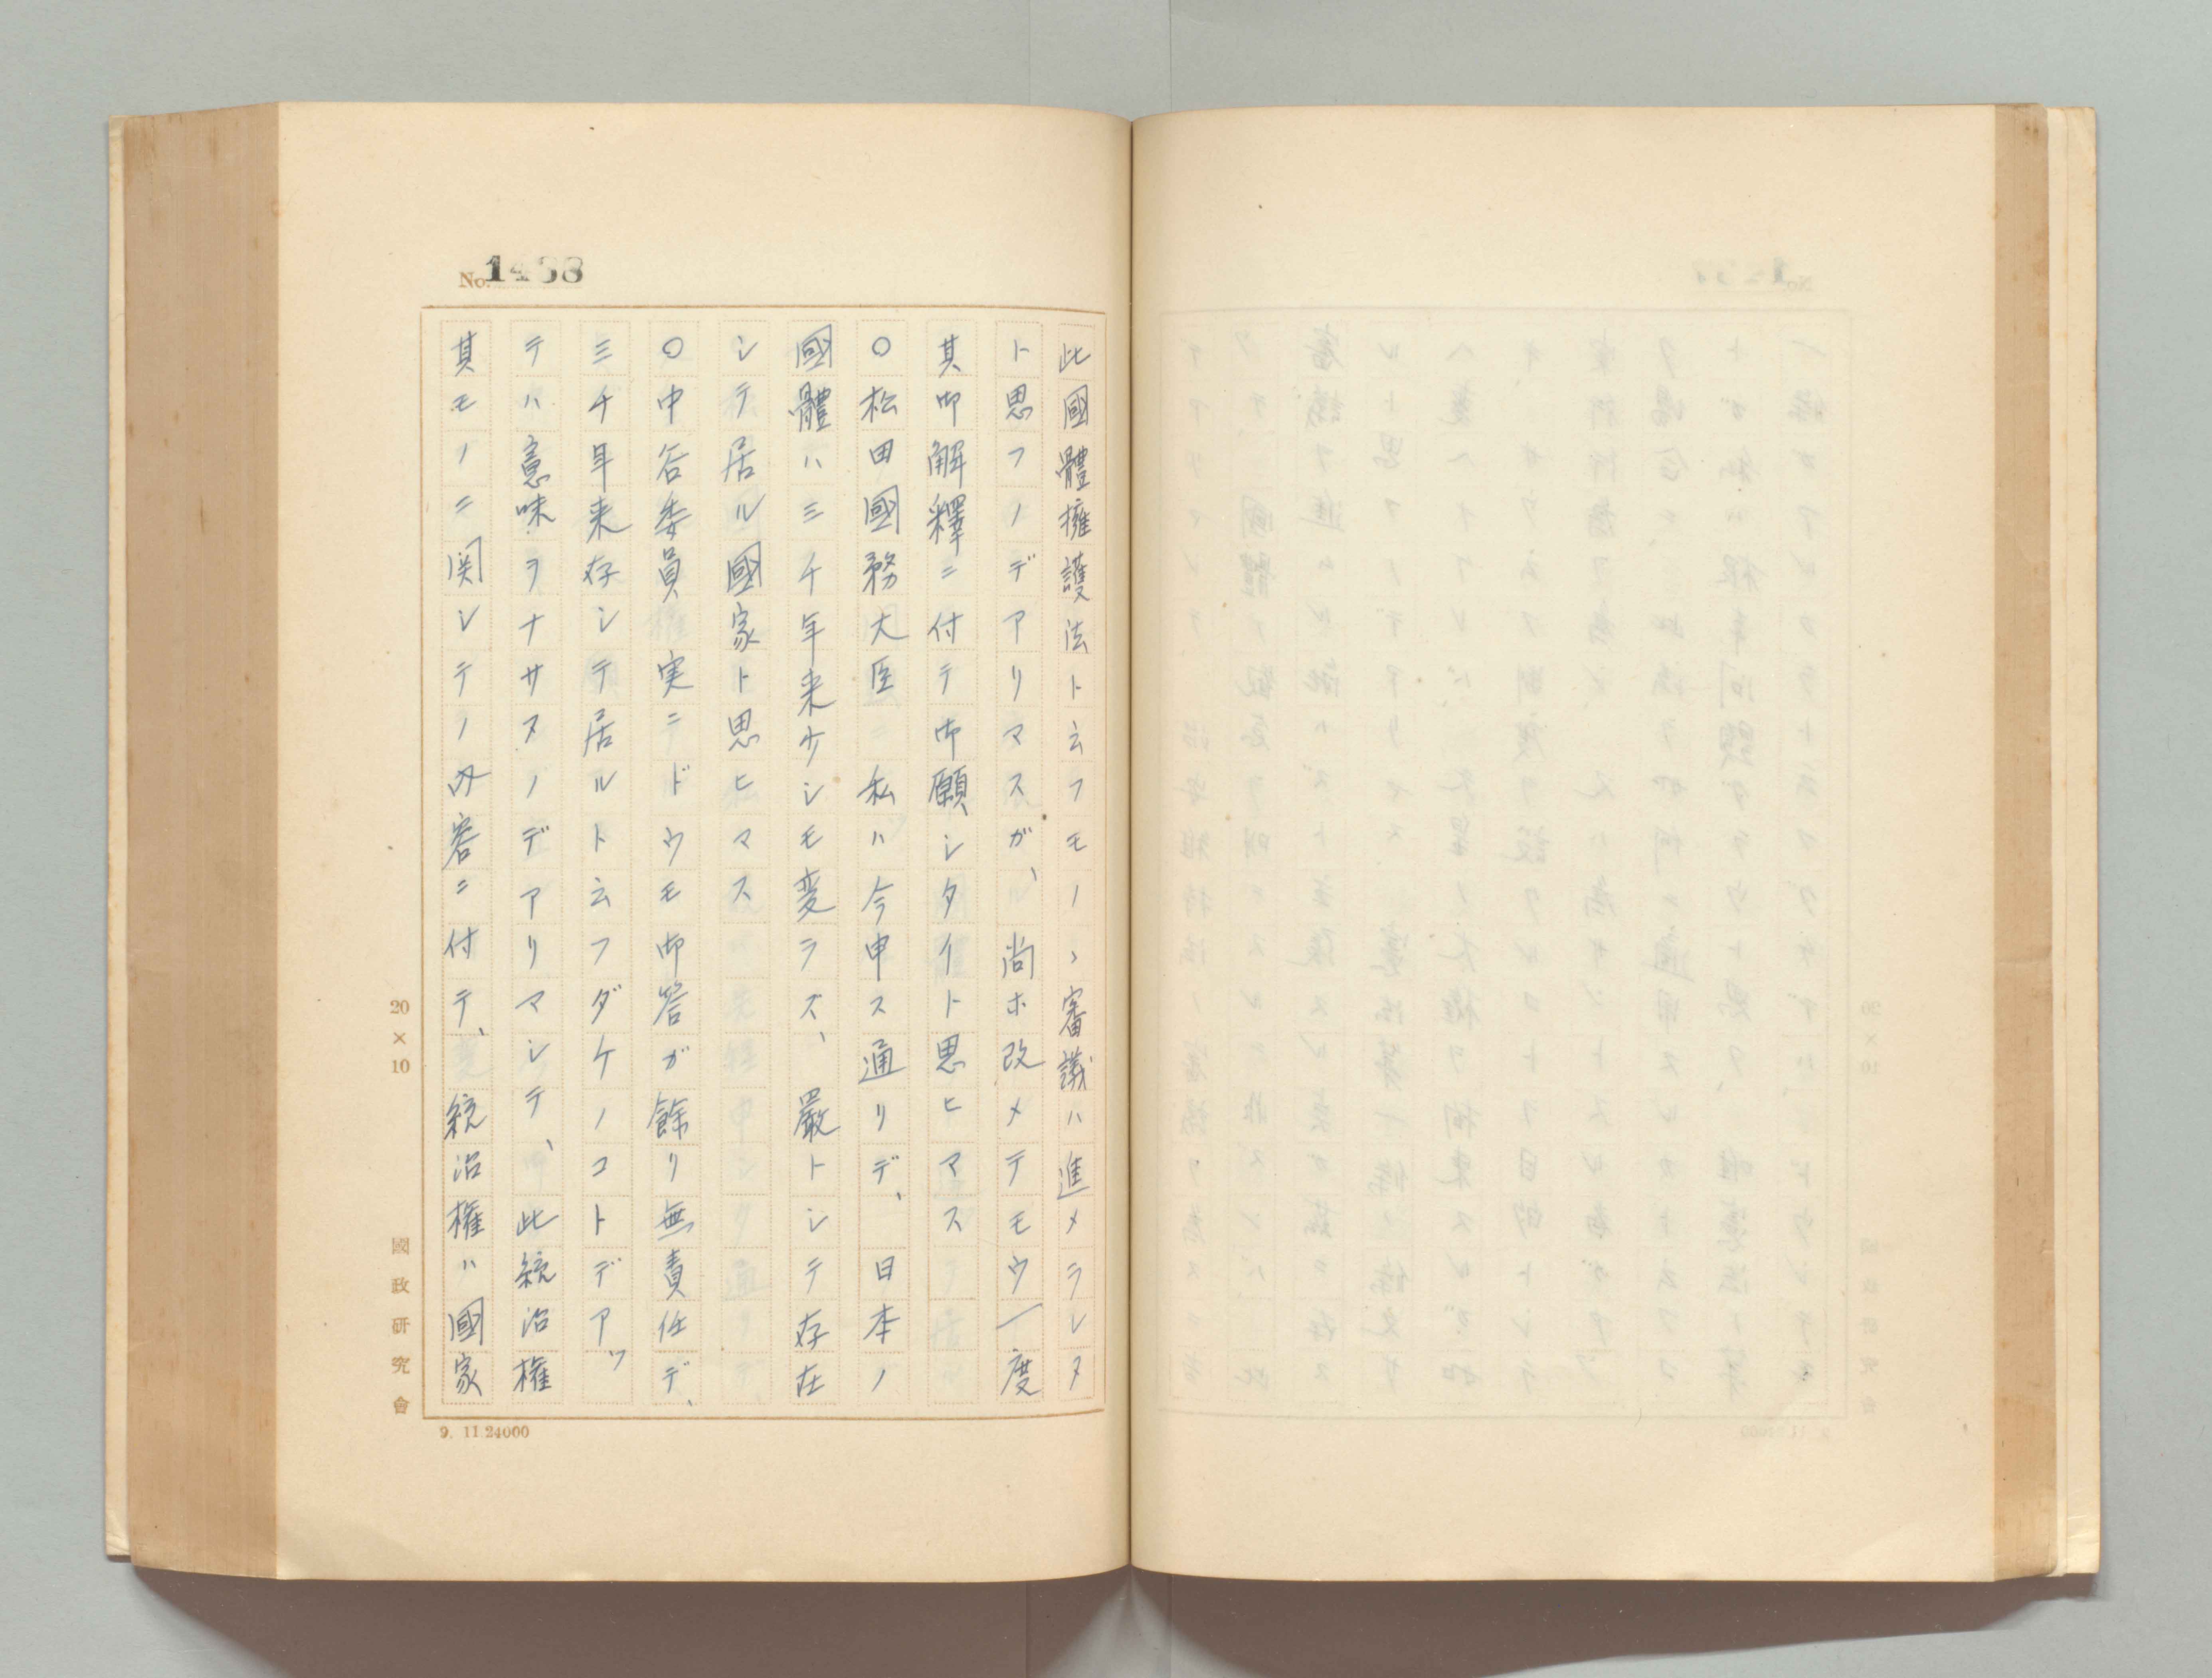 No. 1438
此國體擁護法ト云フモノヽ審議ハ進メラレヌ
ト思フノデアリマスガ、尚ホ改メテモウ一度
其御解釋ニ付テ御願シタイト思ヒマス
〇松田國務大臣 私ハ今申ス通リデ、日本ノ
國體ハ三千年来少シモ変ラズ、嚴トシテ存在
シテ居ル國家ト思ヒマス
〇中谷委員 実ニドウモ御答ガ餘リ無責任デ、
三千年来存シテ居ルト云フダケノコトデアッ
テハ意味ヲナサヌノデアリマシテ、此統治権
其モノニ関シテノ内容ニ付テ、統治権ハ國家
20×10
國政研究會
9. 11.24000